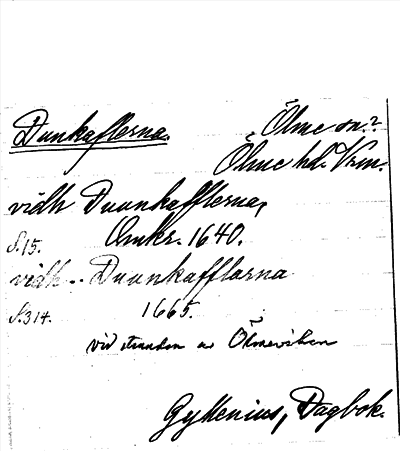 Dunkaflerna. Ölme sn.?
Ölme hd. Vrm.
vidh Duunkafflerna,
S.15. Omkr. 1640.
vidh .. Duunkafflarna
S.314. 1665.
vid stranden av Ölmeviken
Gyllenius, Dagbok.